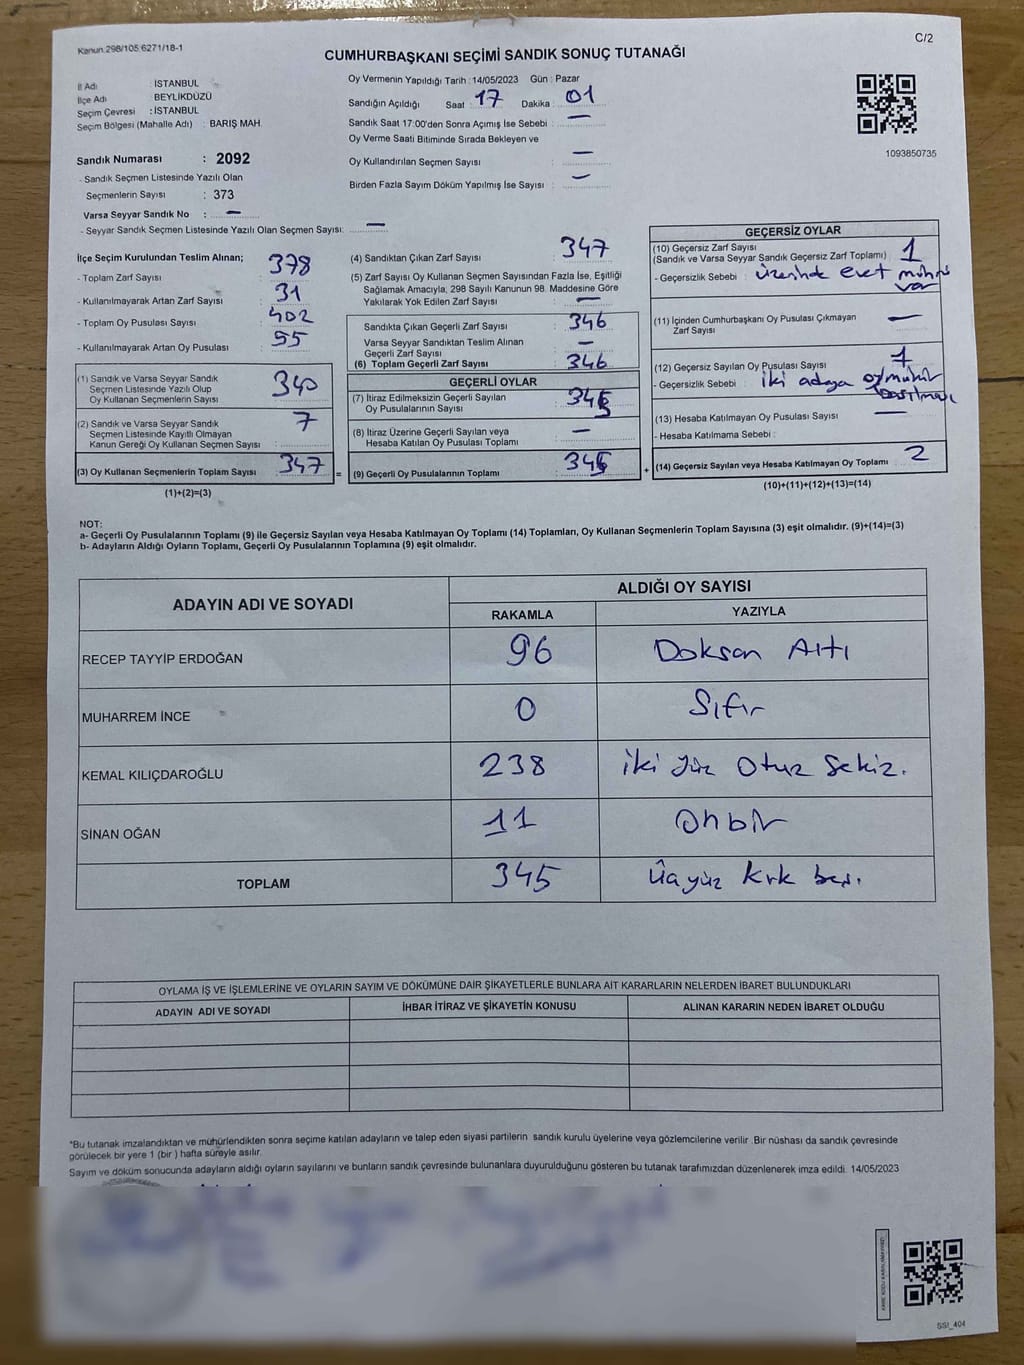 Kanun.298/105 6271/18-1
C/2
CUMHURBAŞKANI SEÇİMİ SANDIK SONUÇ TUTANAĞI
İl Adı : İSTANBUL
İlçe Adı BEYLİKDÜZÜ
Seçim Çevresi : İSTANBUL
Seçim Bölgesi (Mahalle Adı) : BARIŞ MAH.
Sandık Numarası : 2092
- Sandık Seçmen Listesinde Yazılı Olan
Seçmenlerin Sayısı : 373
Varsa Seyyar Sandık No : —
- Seyyar Sandık Seçmen Listesinde Yazılı Olan Seçmen Sayısı: —
Oy Vermenin Yapıldığı Tarih : 14/05/2023 Gün : Pazar
Sandığın Açıldığı Saat : 17 Dakika : 01
Sandık Saat 17:00'den Sonra Açımış İse Sebebi : —
Oy Verme Saati Bitiminde Sırada Bekleyen ve
Oy Kullandırılan Seçmen Sayısı : —
Birden Fazla Sayım Döküm Yapılmış İse Sayısı : —
1093850735
İlçe Seçim Kurulundan Teslim Alınan;
- Toplam Zarf Sayısı : 378
- Kullanılmayarak Artan Zarf Sayısı : 31
- Toplam Oy Pusulası Sayısı : 402
- Kullanılmayarak Artan Oy Pusulası : 55
(1) Sandık ve Varsa Seyyar Sandık
Seçmen Listesinde Yazılı Olup
Oy Kullanan Seçmenlerin Sayısı 340
(2) Sandık ve Varsa Seyyar Sandık
Seçmen Listesinde Kayıtlı Olmayan
Kanun Gereği Oy Kullanan Seçmen Sayısı : 7
(3) Oy Kullanan Seçmenlerin Toplam Sayısı : 347
(1)+(2)=(3)
=
(4) Sandıktan Çıkan Zarf Sayısı : 347
(5) Zarf Sayısı Oy Kullanan Seçmen Sayısından Fazla İse, Eşitliği
Sağlamak Amacıyla, 298 Sayılı Kanunun 98. Maddesine Göre
Yakılarak Yok Edilen Zarf Sayısı : —
Sandıkta Çıkan Geçerli Zarf Sayısı : 346
Varsa Seyyar Sandıktan Teslim Alınan
Geçerli Zarf Sayısı : —
(6) Toplam Geçerli Zarf Sayısı : 346
GEÇERLİ OYLAR
(7) İtiraz Edilmeksizin Geçerli Sayılan
Oy Pusulalarının Sayısı : 345
(8) İtiraz Üzerine Geçerli Sayılan veya
Hesaba Katılan Oy Pusulası Toplamı : —
(9) Geçerli Oy Pusulalarının Toplamı : 345
+
GEÇERSİZ OYLAR
(10) Geçersiz Zarf Sayısı
(Sandık ve Varsa Seyyar Sandık Geçersiz Zarf Toplamı) : 1
- Geçersizlik Sebebi : üzerinde evet mührü
var
(11) İçinden Cumhurbaşkanı Oy Pusulası Çıkmayan
Zarf Sayısı : —
(12) Geçersiz Sayılan Oy Pusulası Sayısı : 1
- Geçersizlik Sebebi : iki adaya oy mühür
basılması
(13) Hesaba Katılmayan Oy Pusulası Sayısı : —
- Hesaba Katılmama Sebebi :
(14) Geçersiz Sayılan veya Hesaba Katılmayan Oy Toplamı : 2
(10)+(11)+(12)+(13)=(14)
NOT:
a- Geçerli Oy Pusulalarının Toplamı (9) ile Geçersiz Sayılan veya Hesaba Katılmayan Oy Toplamı (14) Toplamları, Oy Kullanan Seçmenlerin Toplam Sayısına (3) eşit olmalıdır. (9)+(14)=(3)
b- Adayların Aldığı Oyların Toplamı, Geçerli Oy Pusulalarının Toplamına (9) eşit olmalıdır.
ADAYIN ADI VE SOYADI
ALDIĞI OY SAYISI
RAKAMLA YAZIYLA
RECEP TAYYİP ERDOĞAN 96 Doksan Altı
MUHARREM İNCE 0 Sıfır
KEMAL KILIÇDAROĞLU 238 iki yüz Otuz Sekiz.
SİNAN OĞAN 11 Onbir
TOPLAM 345 Üçyüz kırk beş.
OYLAMA İŞ VE İŞLEMLERİNE VE OYLARIN SAYIM VE DÖKÜMÜNE DAİR ŞİKAYETLERLE BUNLARA AİT KARARLARIN NELERDEN İBARET BULUNDUKLARI
ADAYIN ADI VE SOYADI İHBAR İTİRAZ VE ŞİKAYETİN KONUSU ALINAN KARARIN NEDEN İBARET OLDUĞU
*Bu tutanak imzalandıktan ve mühürlendikten sonra seçime katılan adayların ve talep eden siyasi partilerin sandık kurulu üyelerine veya gözlemcilerine verilir .Bir nüshası da sandık çevresinde
görülecek bir yere 1 (bir ) hafta süreyle asılır.
Sayım ve döküm sonucunda adayların aldığı oyların sayılarını ve bunların sandık çevresinde bulunanlara duyurulduğunu gösteren bu tutanak tarafımızdan düzenlenerek imza edildi. 14/05/2023
SSİ_404